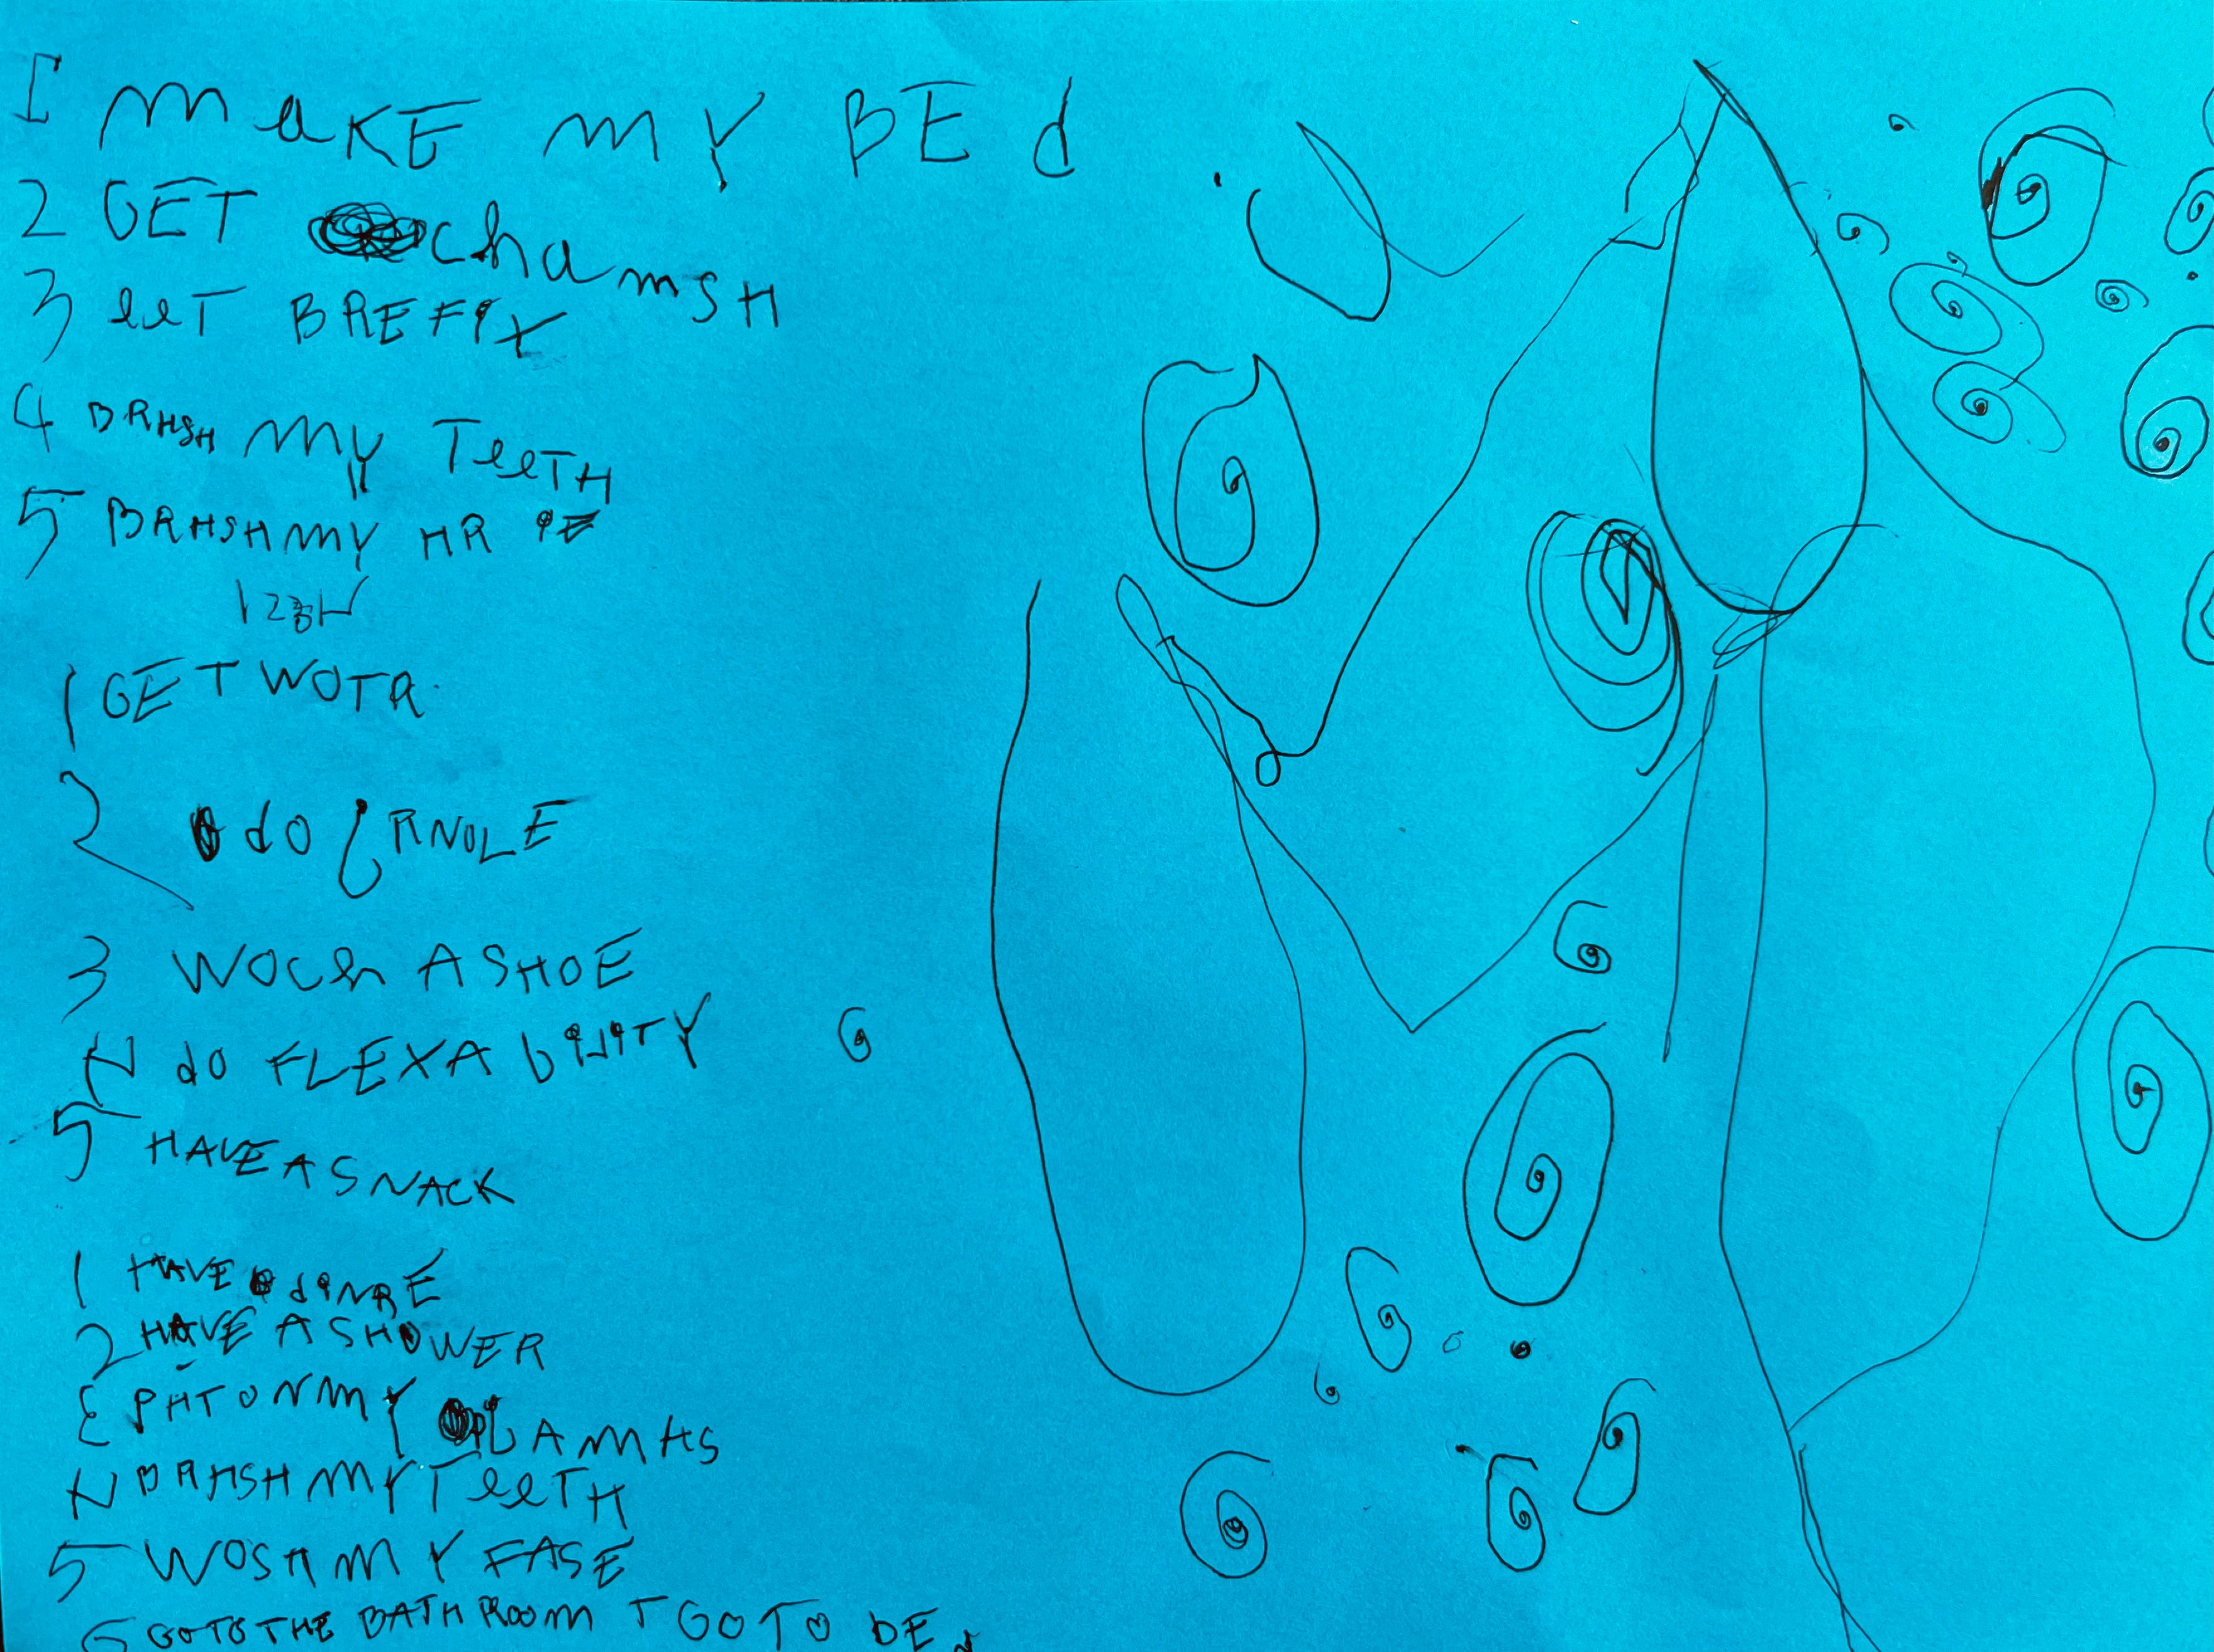 1 maKE mY BEd.
2 GET chamSH
3 eeT BREFiX
4 BRHSH MY TeeTH
5 BRHSH mY HR
1 GET WOTR.
2 do JRNOLE
3 WOCh A SHOE
4 do FLEXA biliTY
5 HAVE A SNACK
1 HAVE diNRE
2 HAVE A SHOWER
3 PHT ON MY JAMHS
4 BRHSH MY TeeTH
5 WOSH MY FASE
6 GO TO THE BATHROOM T GO TO BEd